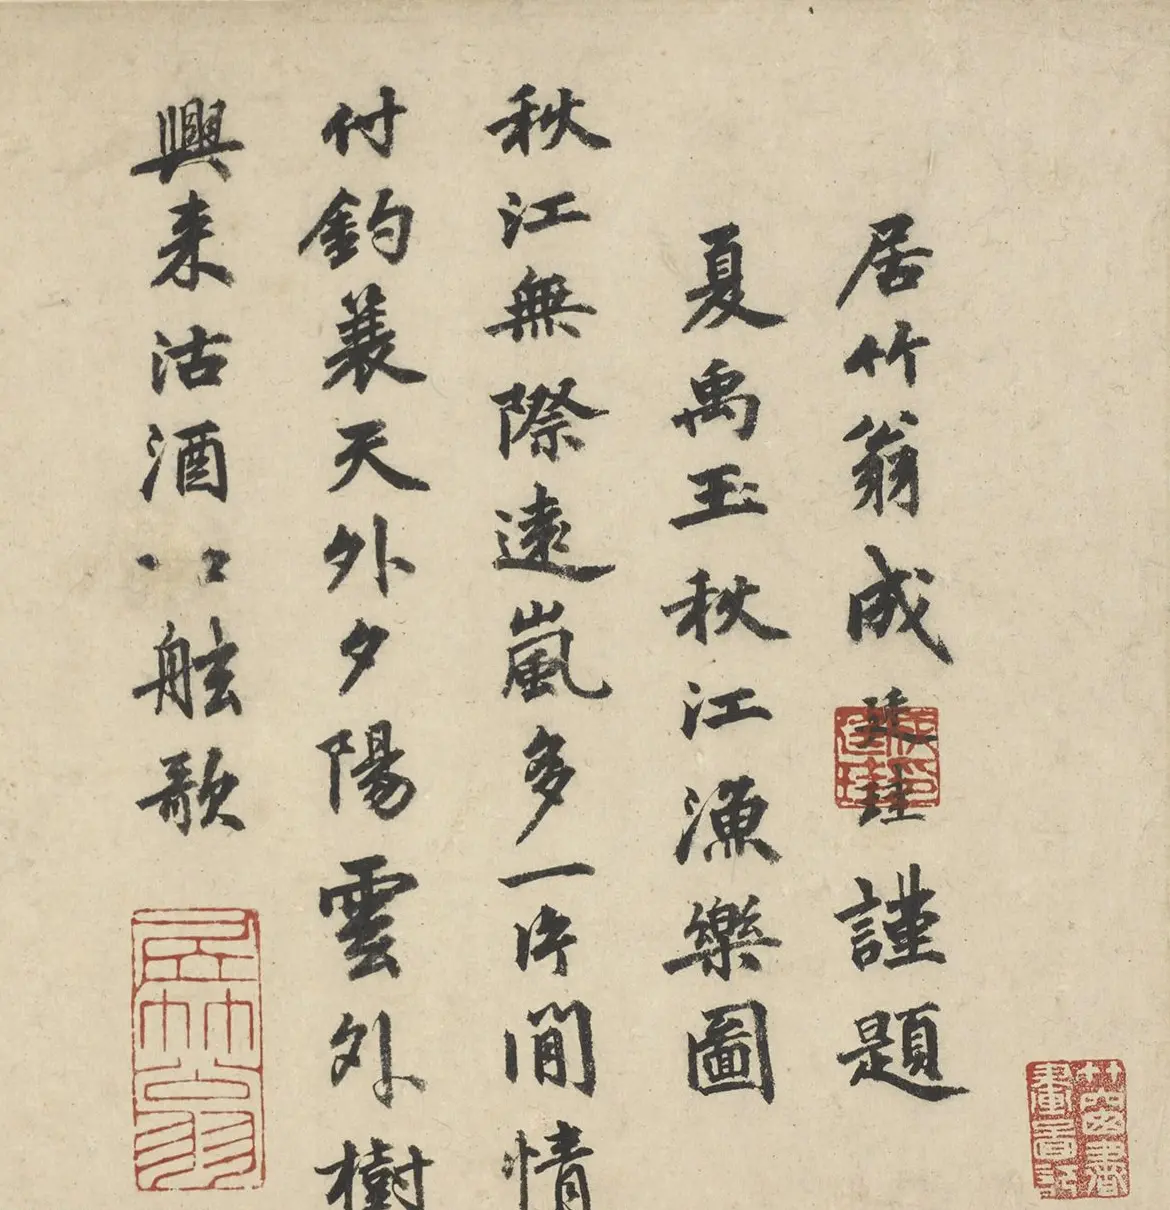 居竹翁成廷珪謹題
夏禹玉秋江漁樂圖
秋江無際遠嵐多一片閒情
付釣蓑天外夕陽雲外樹
興来沽酒舷歌
居竹翁